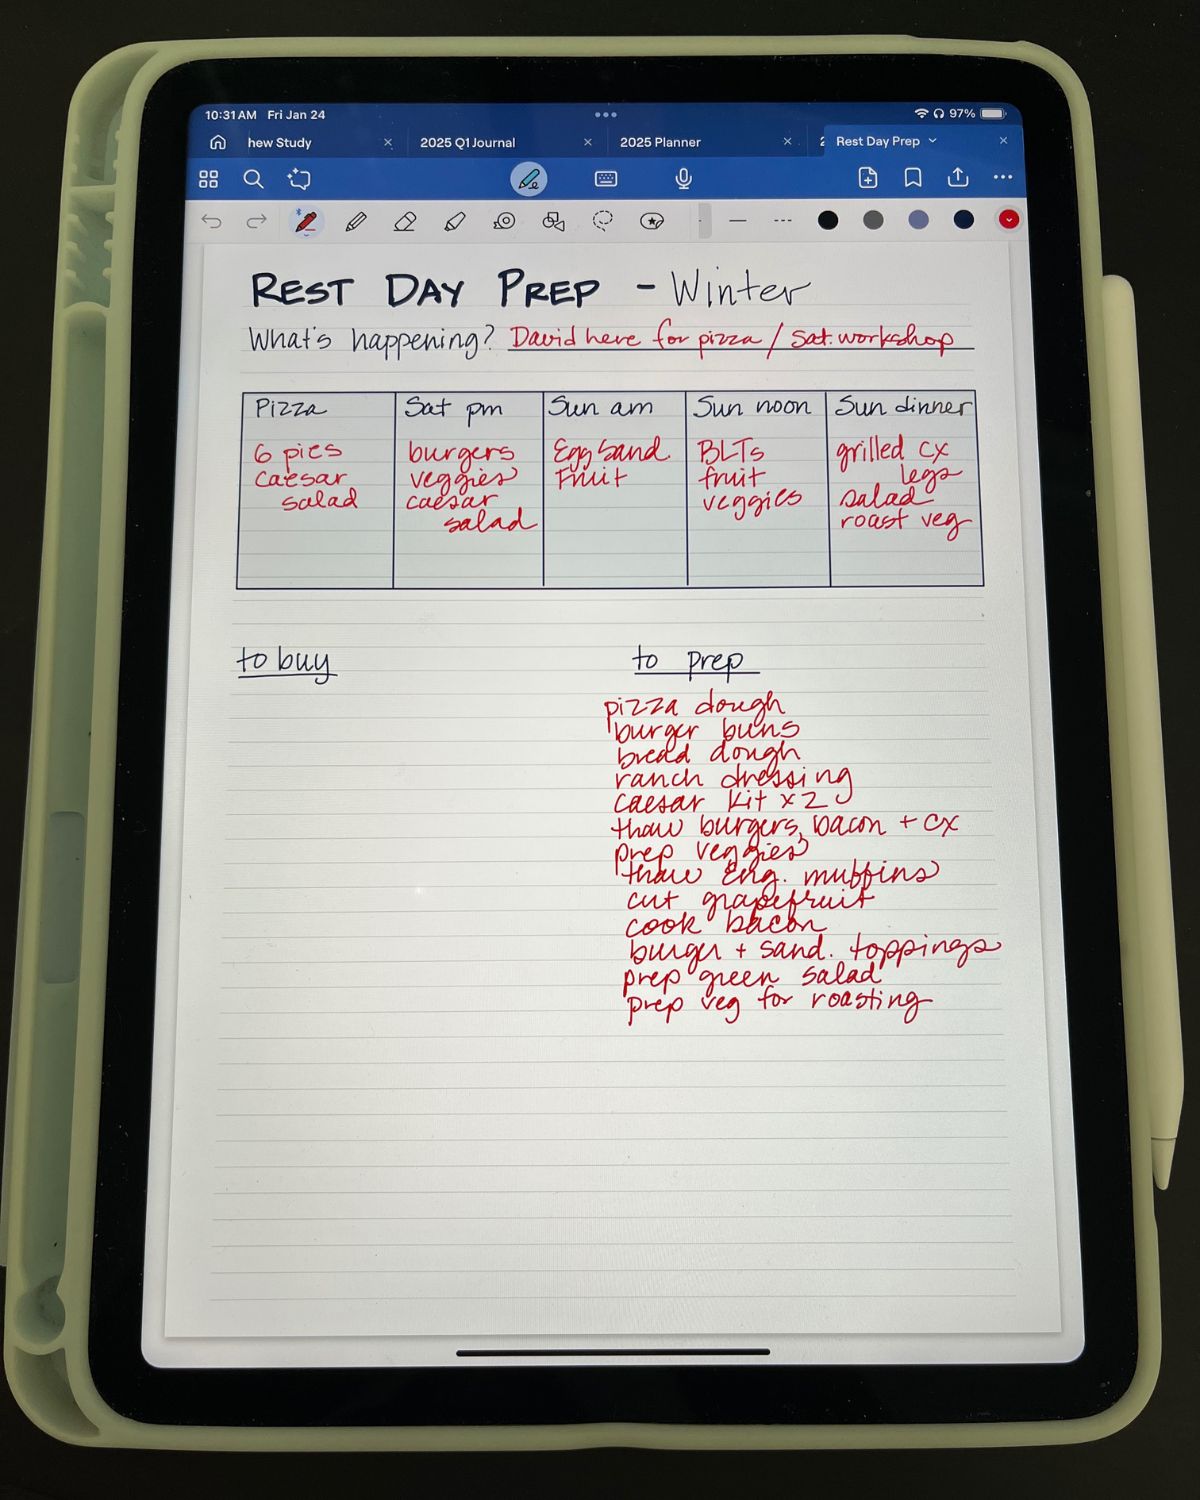 10:31 AM Fri Jan 24
97%
hew Study
2025 Q1 Journal
2025 Planner
2
Rest Day Prep
REST DAY PREP - Winter
What's happening? David here for pizza / Sat. workshop
Pizza
6 pies
caesar
salad
Sat pm
burgers
veggies
caesar
salad
Sun am
Egg Sand.
Fruit
Sun noon
BLTs
fruit
veggies
Sun dinner
grilled cx
legs
salad
roast veg
to buy
to prep
pizza dough
burger buns
bread dough
ranch dressing
caesar kit x 2
thaw burgers, bacon + cx
prep veggies
thaw Eng. muffins
cut grapefruit
cook bacon
burger + sand. toppings
prep green salad
prep veg for roasting